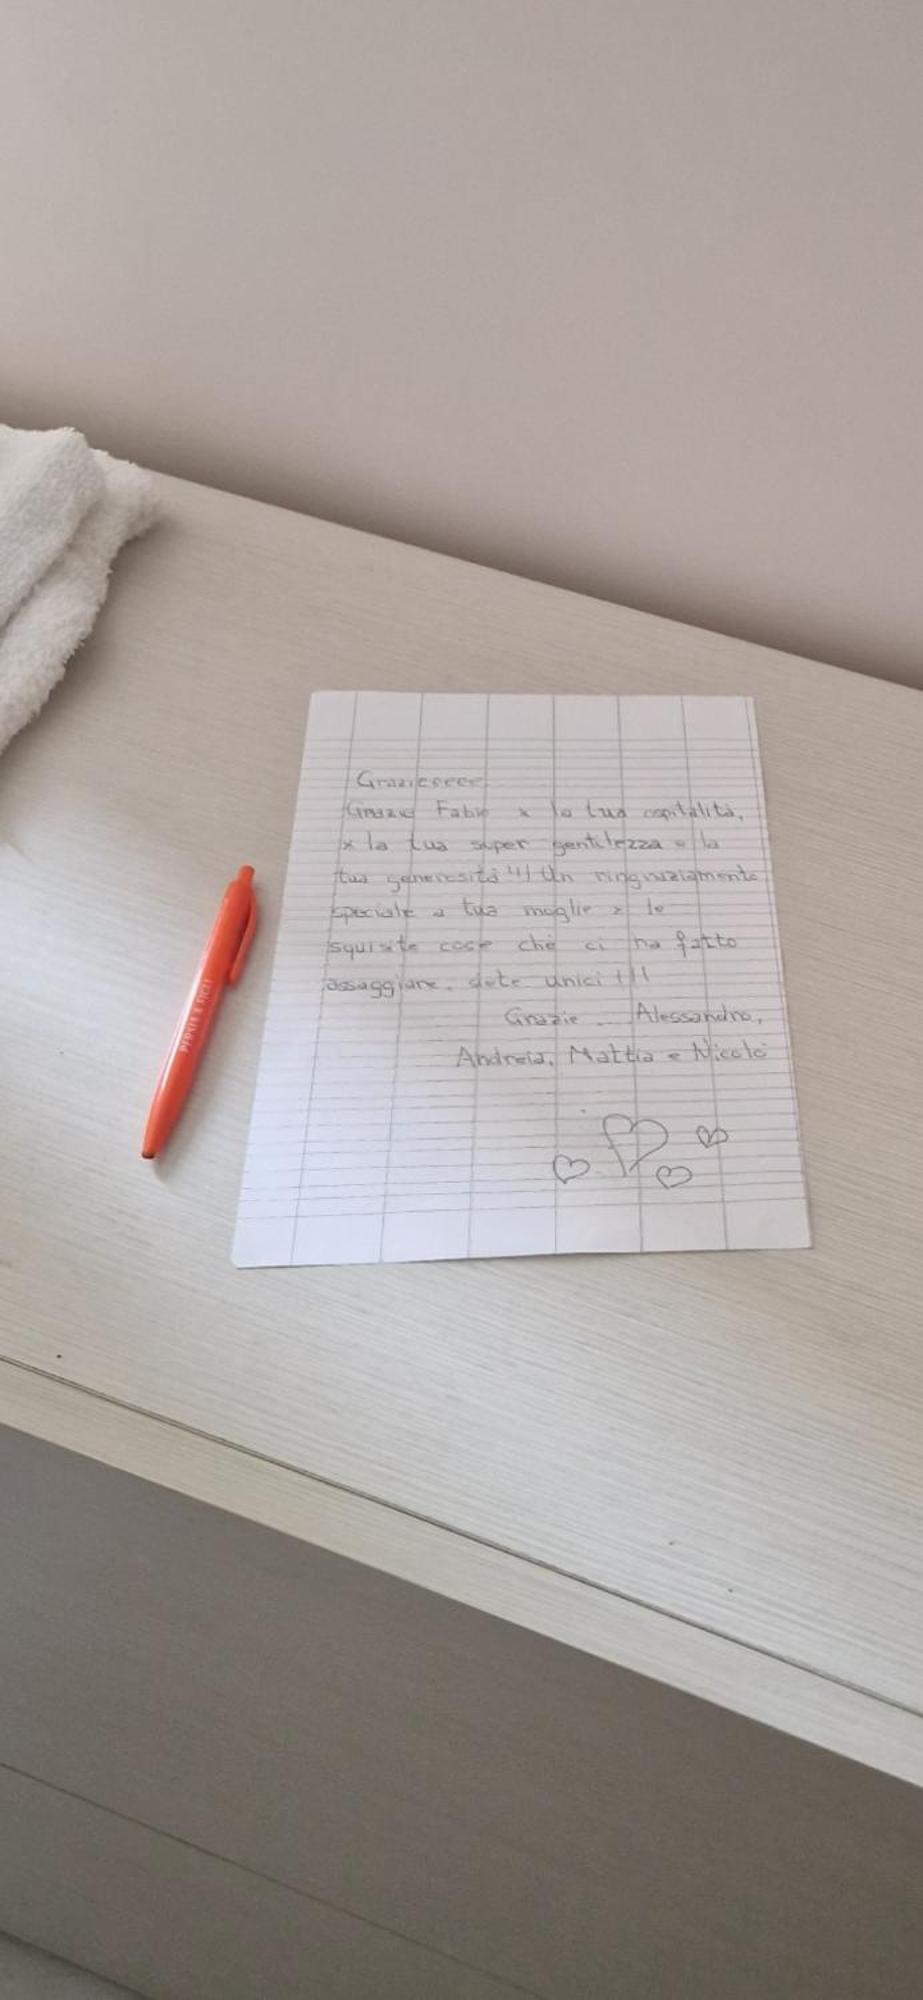 Grazieeeee
Grazie Fabio x la tua ospitalità,
x la tua super gentilezza e la
tua generosità!!! Un ringraziamento
speciale a tua moglie x le
squisite cose che ci ha fatto
assaggiare. siete unici!!!
Grazie Alessandro,
Andreia, Mattia e Nicolò